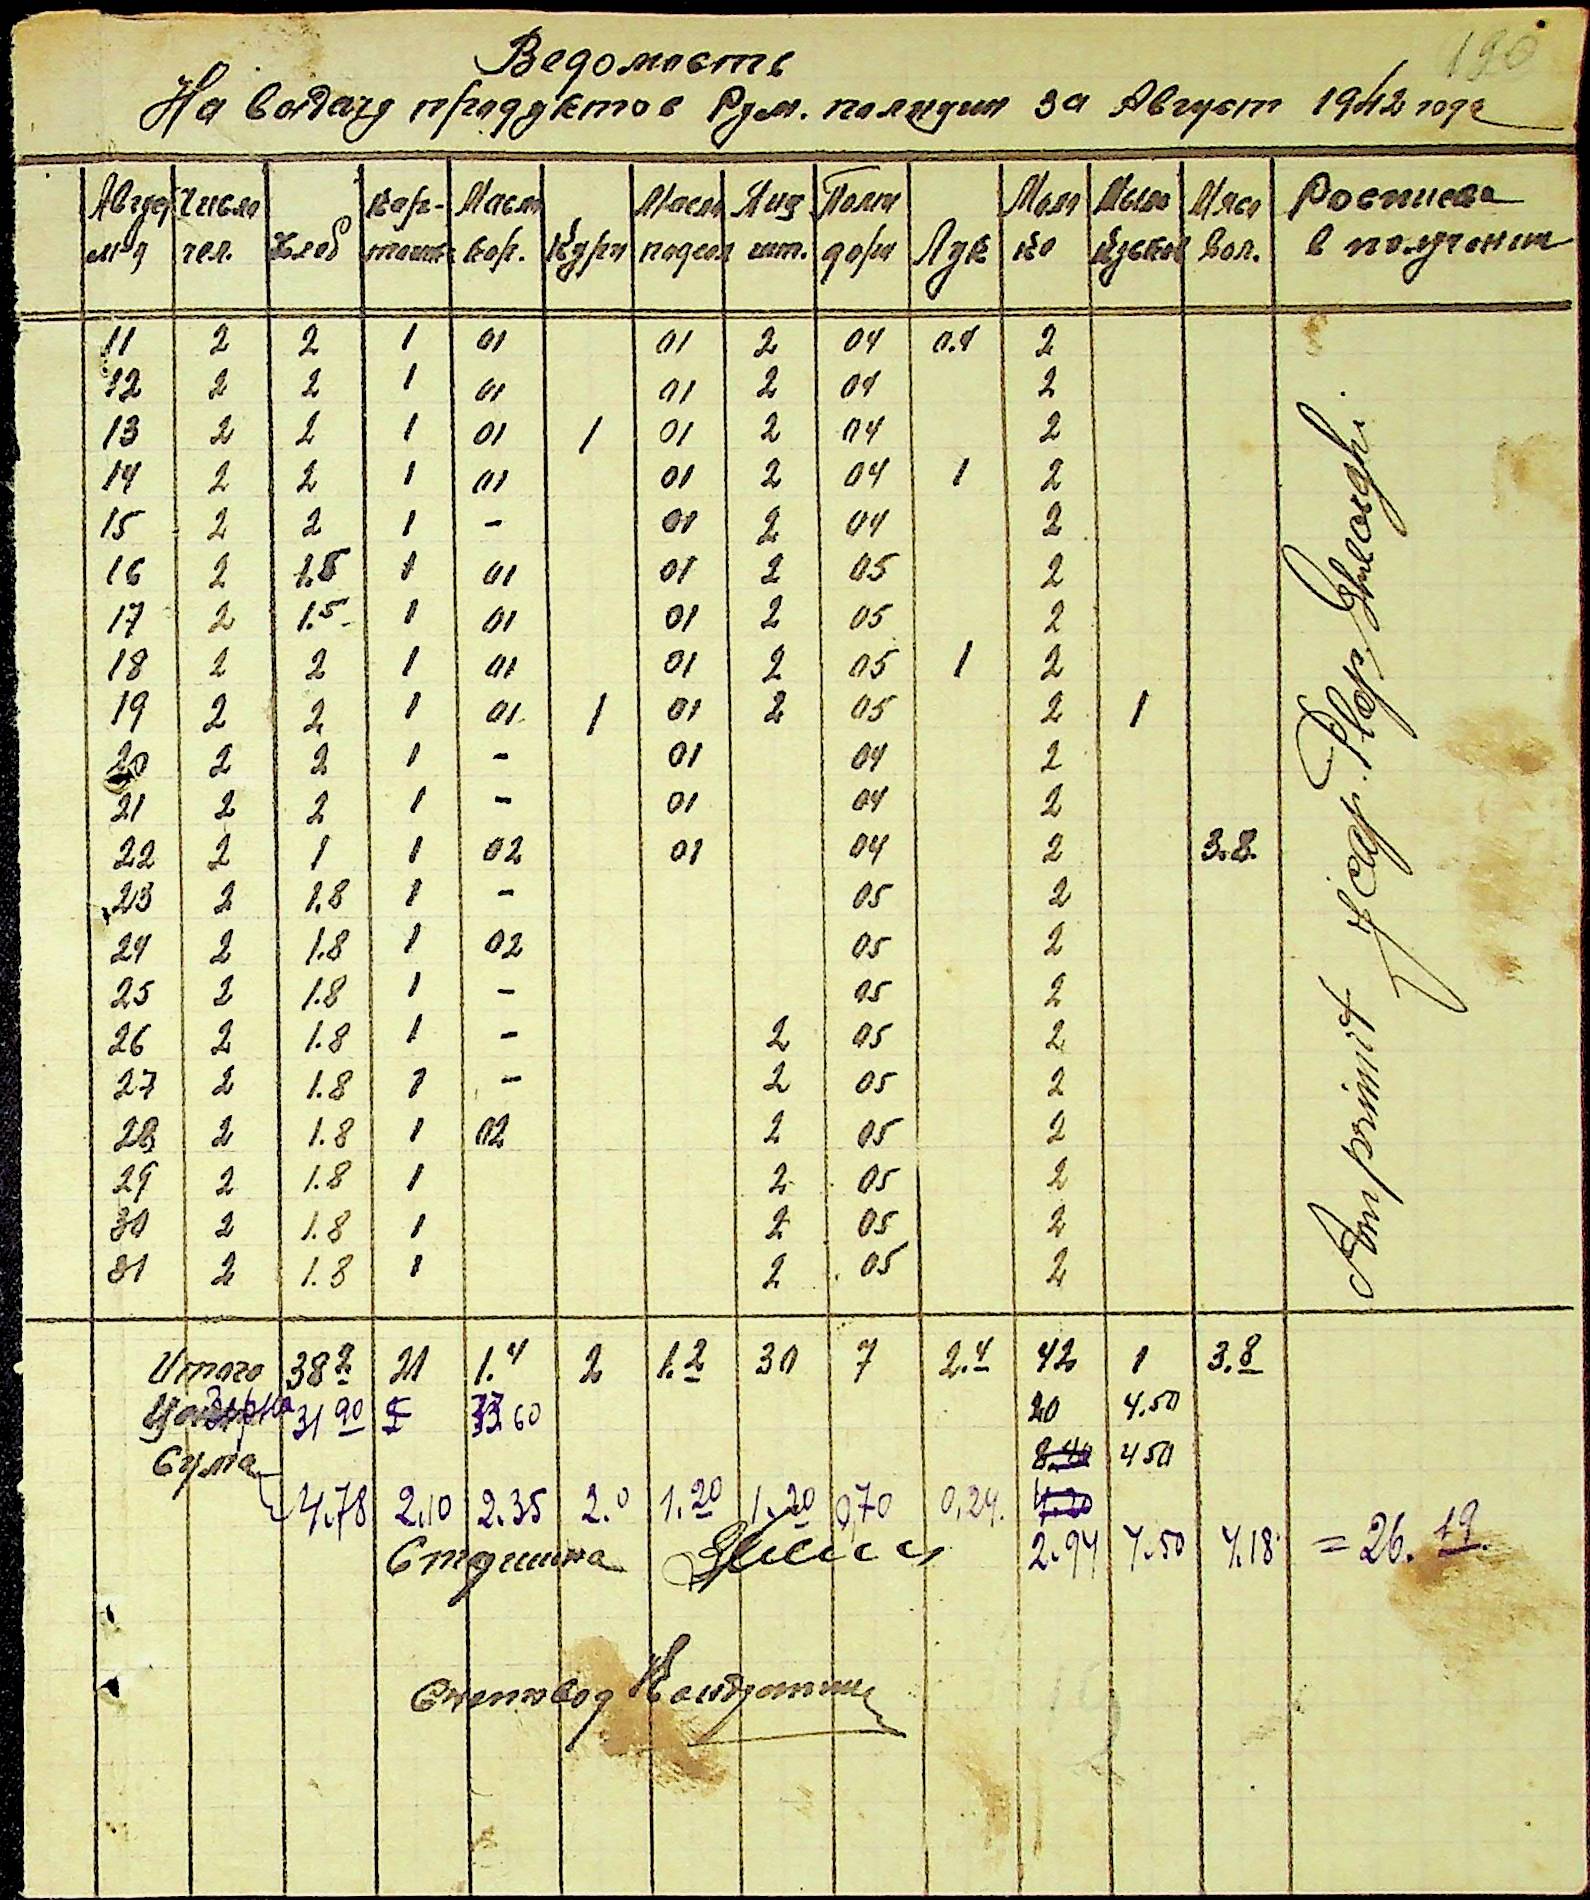 190
Ведомость
На выдачу продуктов Рум. полиции за Август 1942 года
Август м-ц | Число чел. | Хлеб | Картошк | Масло кор. | Куры | Масло подсол | Яиц шт. | Поми доры | Лук | Моло ко | Мыло кусков | Мясо вол. | Росписка в получении
11 2 2 1 01 01 2 04 0.4 2
12 2 2 1 01 01 2 04 2
13 2 2 1 01 1 01 2 04 2
14 2 2 1 01 01 2 04 1 2
15 2 2 1 - 01 2 04 2
16 2 1.5 1 01 01 2 05 2
17 2 1.5 1 01 01 2 05 2
18 2 2 1 01 01 2 05 1 2
19 2 2 1 01 1 01 2 05 2 1
20 2 2 1 - 01 04 2
21 2 2 1 - 01 04 2
22 2 1 1 02 01 04 2 3.8.
23 2 1.8 1 - 05 2
24 2 1.8 1 02 05 2
25 2 1.8 1 - 05 2
26 2 1.8 1 - 2 05 2
27 2 1.8 1 - 2 05 2
28 2 1.8 1 02 2 05 2
29 2 1.8 1 2 05 2
30 2 1.8 1 2 05 2
31 2 1.8 1 2 05 2
Am primit
Gheorghi
Итого 38 2 21 1.4 2 1.2 30 7 2.4 42 1 3.8
31 90 60 20 4.50
Сума 8.40 4 50
4.78 2.10 2.35 2.0 1.20 1.20 0,70 0,24. 4.20
2.94 4.50 4.18 = 26.19
Старшина
Счетовод